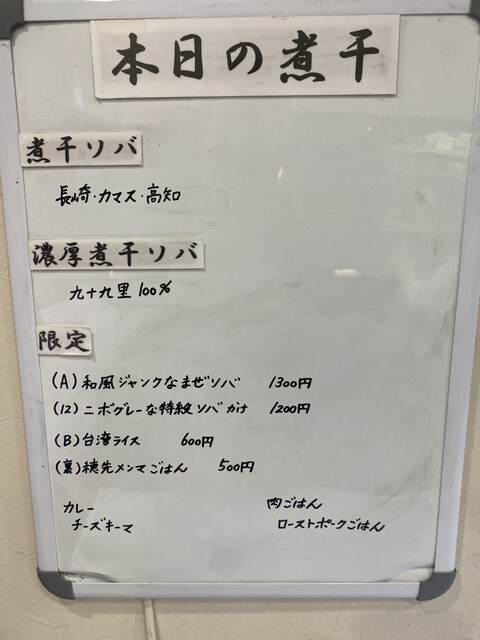 本日の煮干
煮干ソバ
長崎・カマス・高知
濃厚煮干ソバ
九十九里100%
限定
(A)和風ジャンクなまぜソバ 1300円
(12)ニボグレーな特級ソバかけ 1200円
(B)台湾ライス 600円
(裏)穂先メンマごはん 500円
カレー
チーズキーマ
肉ごはん
ローストポークごはん